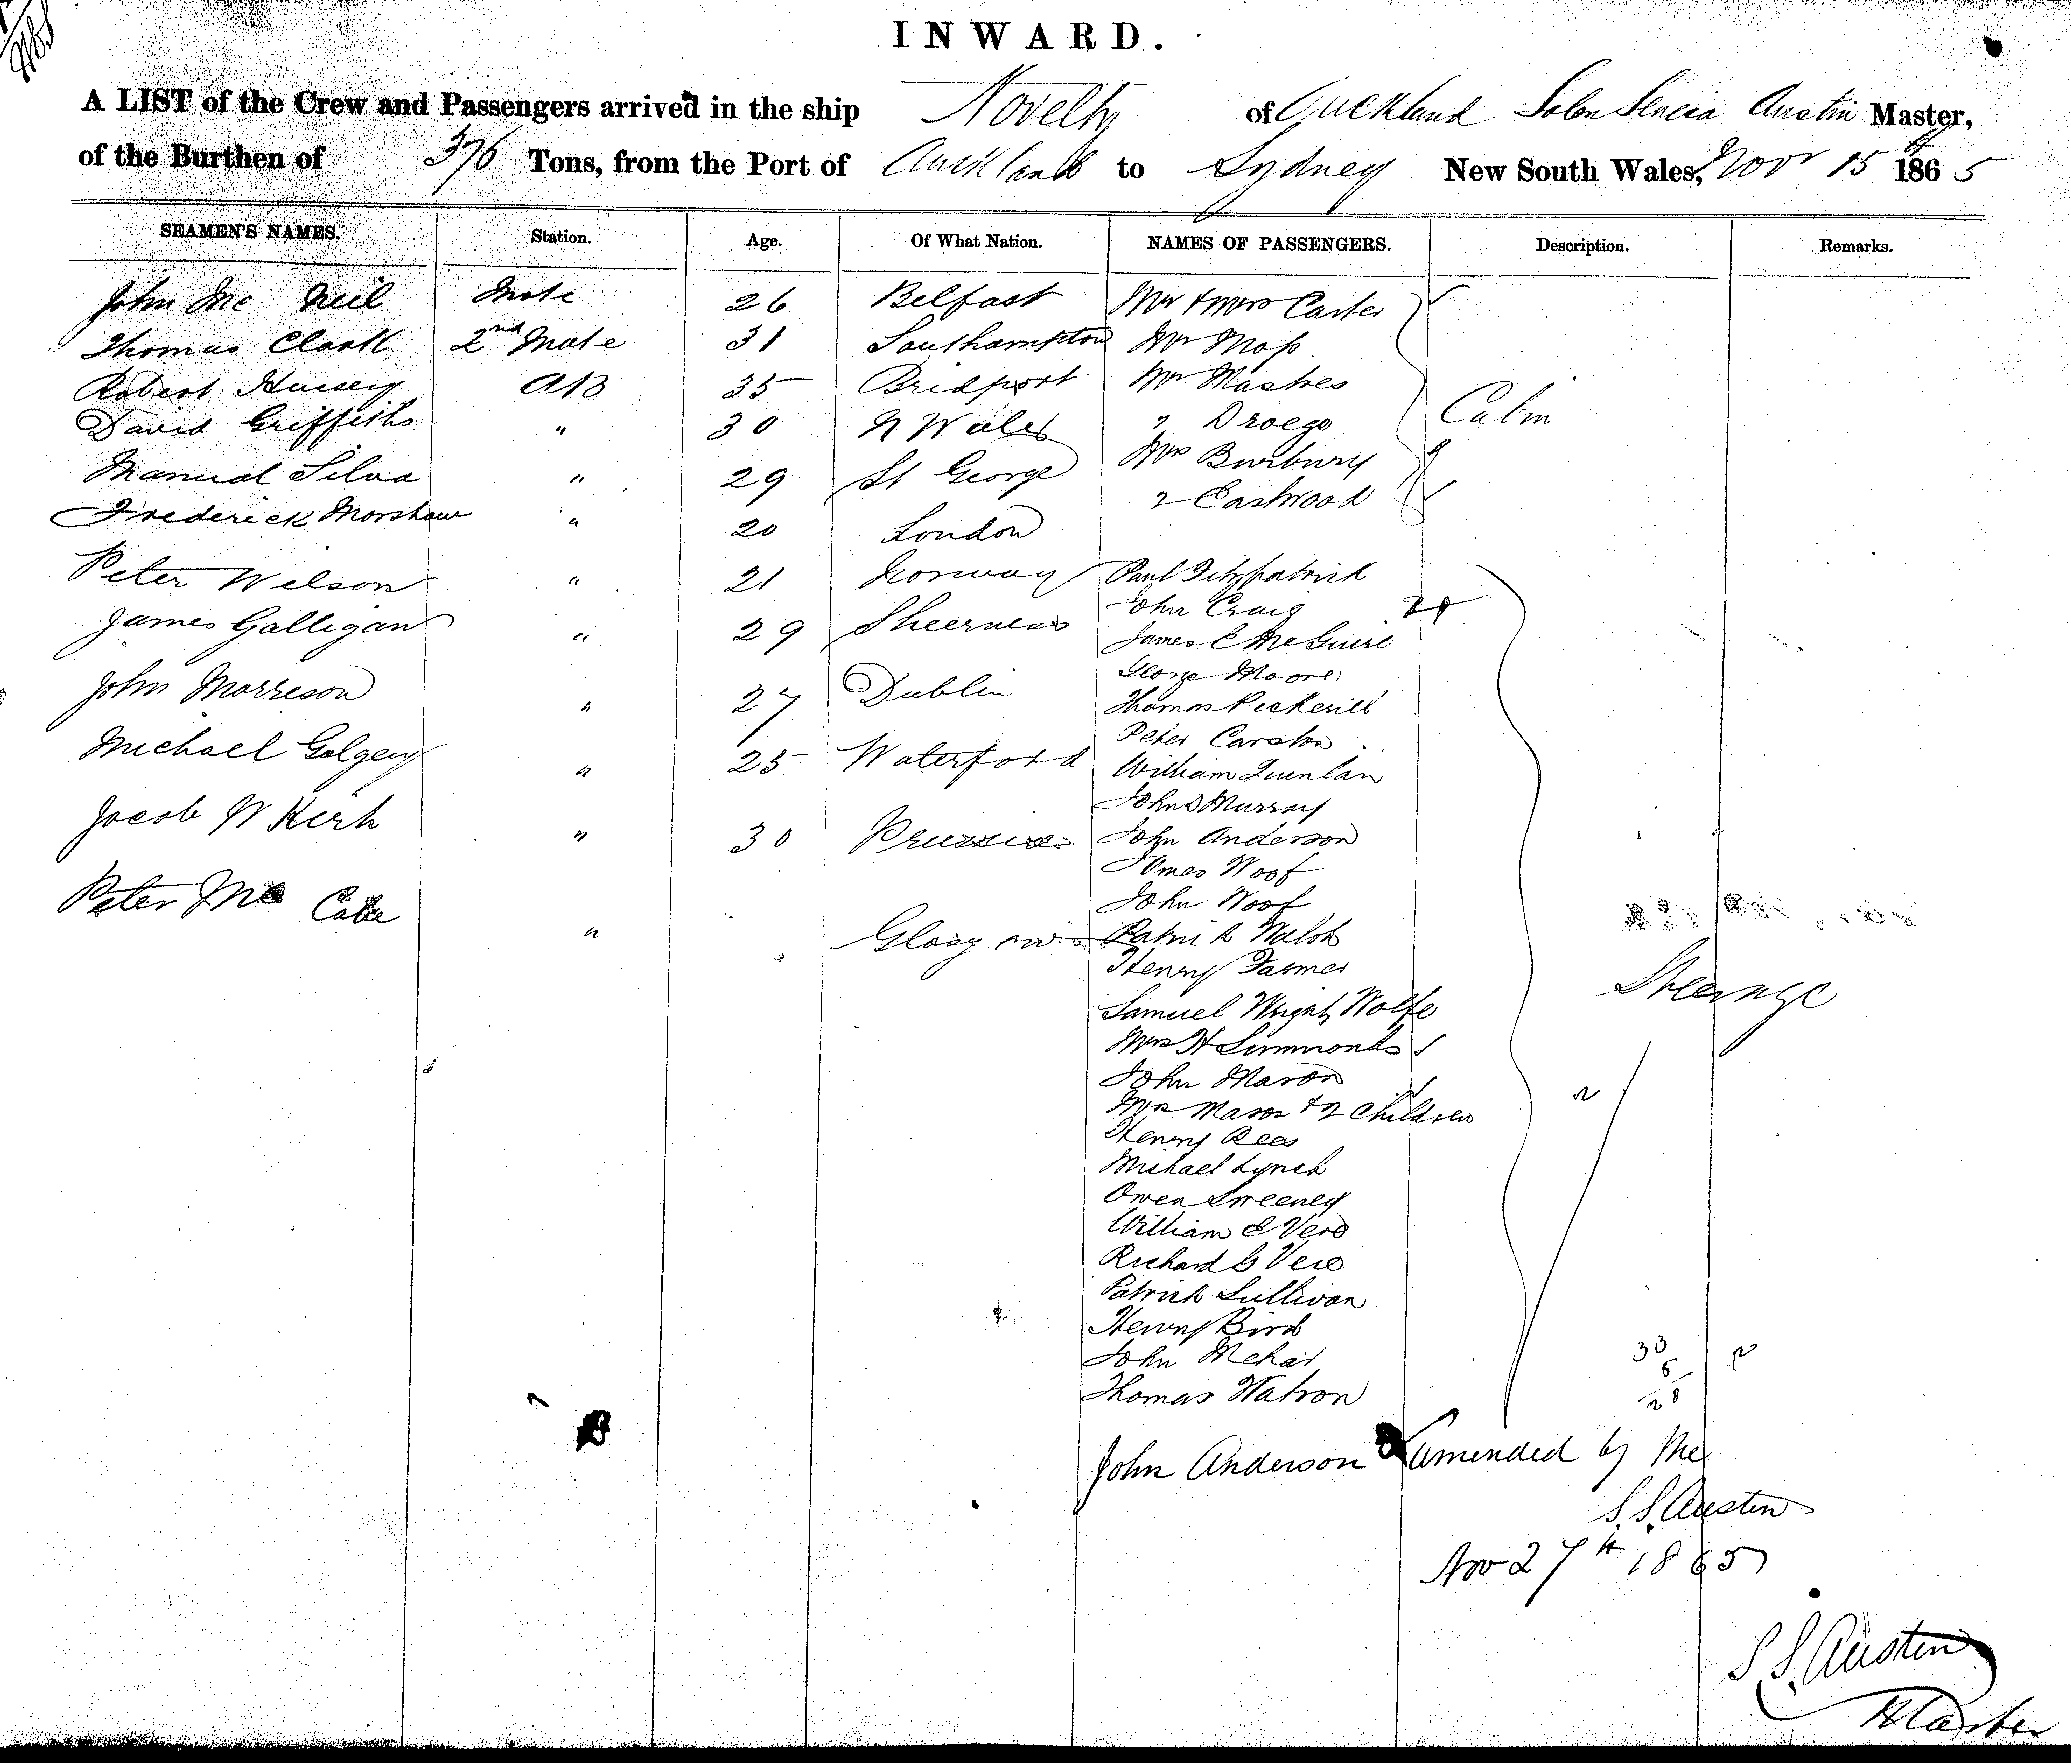 INWARD.
A LIST of the Crew and Passengers arrived in the ship Novelty of Auckland Solon Seneca Austin Master,
of the Burthen of 376 Tons, from the Port of Auckland to Sydney New South Wales, Novr 15 1865
SEAMEN'S NAMES. Station. Age. Of What Nation. NAMES OF PASSENGERS. Description. Remarks.
John Mc Neil Mate 26 Belfast Mr & Mrs Carter
Thomas Clark 2nd Mate 31 Southampton Mr Moss
Robert Hussey AB 35 Bridport Mr
David Griffiths " 30 N Wales " Droege Cabin
Manuel Silva " 29 St George Mrs Burbury
Frederick Morshaw " 20 London " Eastwood
Peter Wilson " 21 Norway Paul Fitzpatrick
James Galligan " 29 Sheerness John Craig
James E McGuire
George Moore
John Morrison " 27 Dublin Thomas Pickerill
Peter
Michael " 25 Waterford William Quinlan
John Murray
Jacob W Kirk " 30 Prussia John Anderson
James Woof
John Woof
Peter Mc Cabe " Glasgow Patrick Walsh
Henry Farmer
Samuel Wright Wolfe Steerage
Mrs H Simmonds
John Mason
Mrs Mason & 2 Children
Henry Rees
Michael Lynch
Owen Sweeney
William E Vero
Richard G Vero
Patrick Sullivan
Henry Bird
John
Thomas Watson
John Anderson amended by Me
S.S. Austin
Nov 27th 1865
S.S. Austin
Master